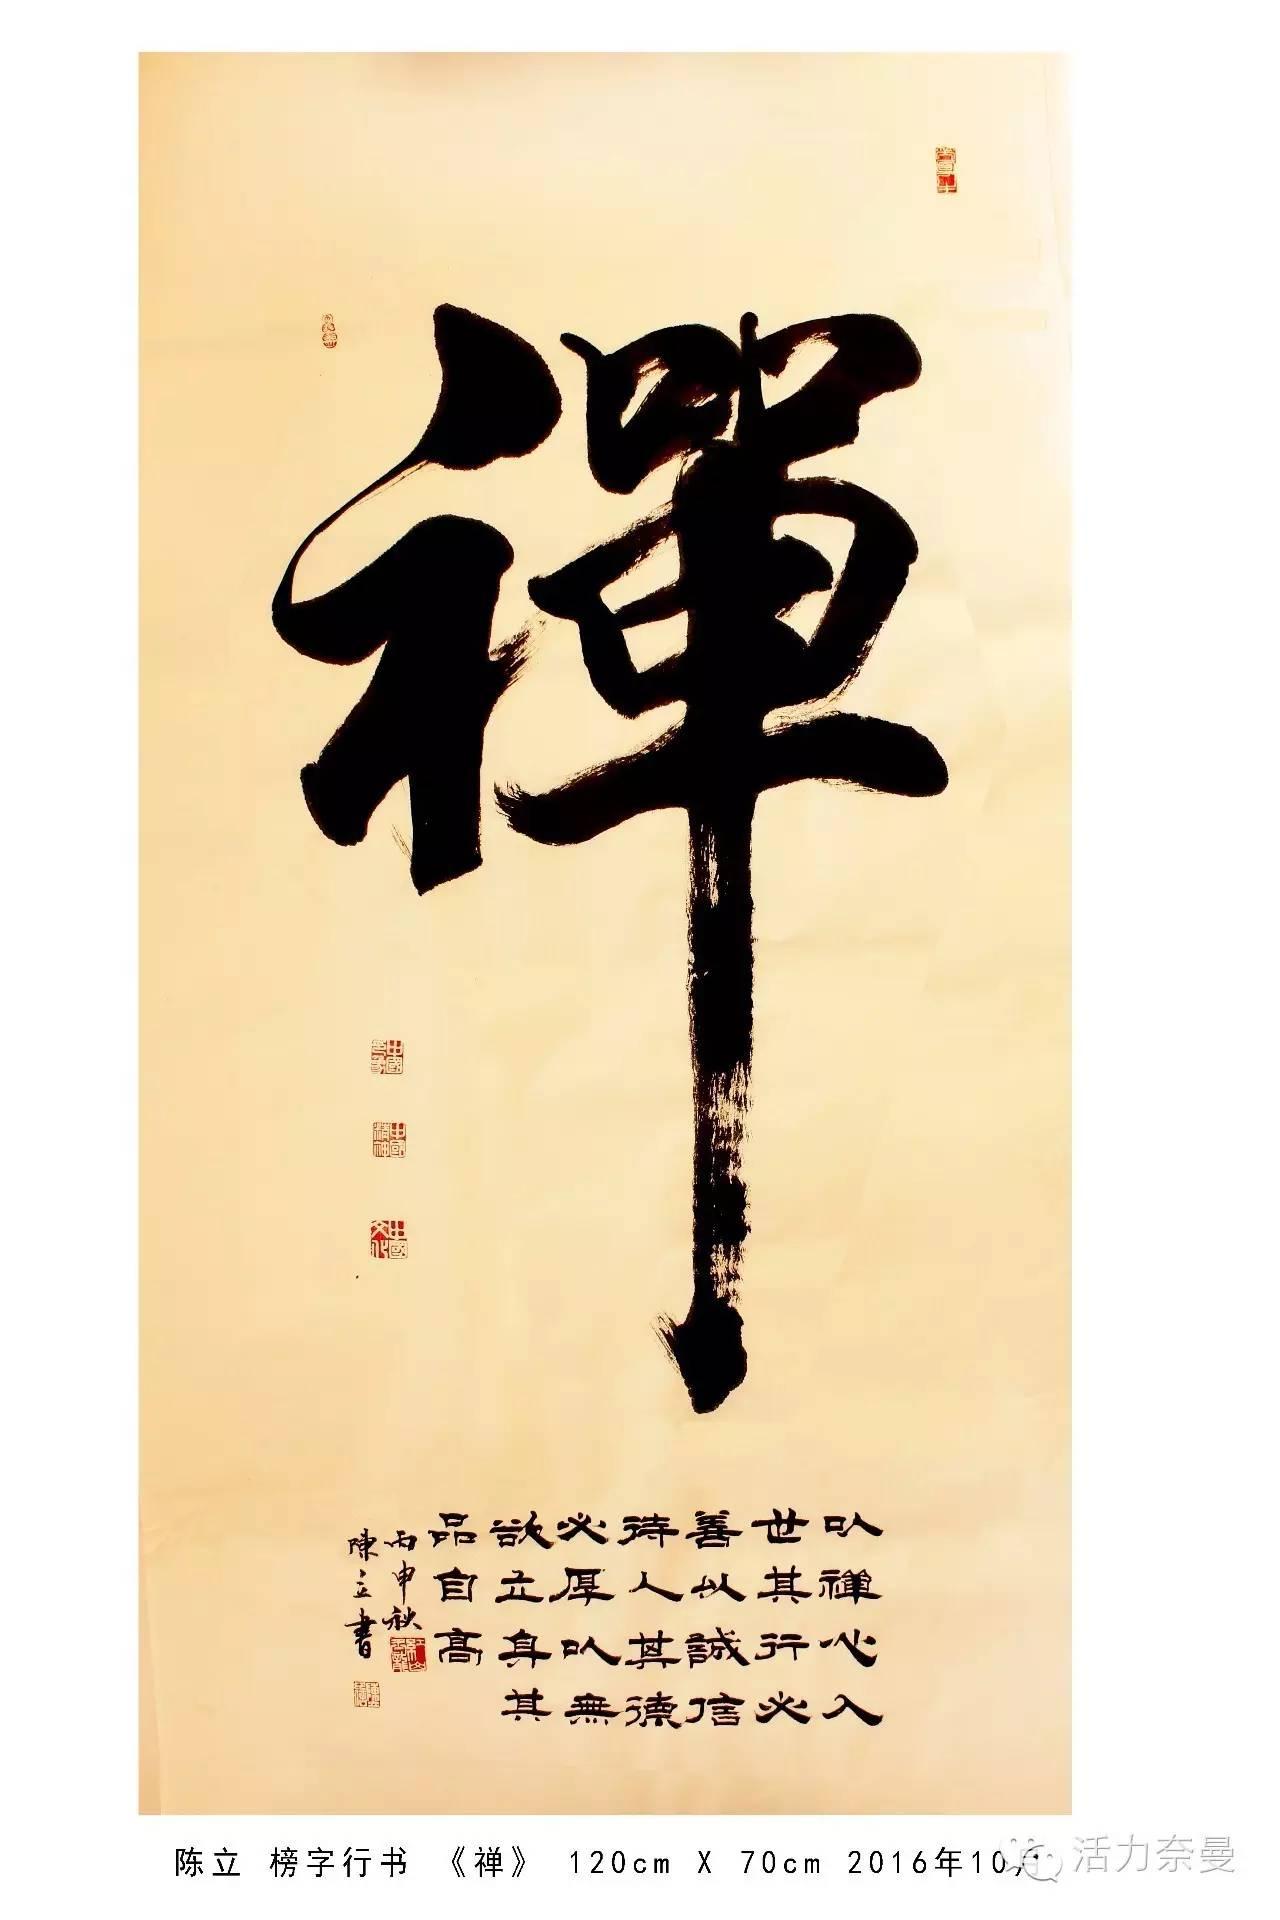 禪
㕥禪心入
世其行必
善㕥誠信
待人其德
必厚㕥無
欲立身其
品自高
丙申秋
陳立書
中國
中國精神
中國文化
陈立 榜字行书 《禅》 120cm X 70cm 2016年10月
活力奈曼